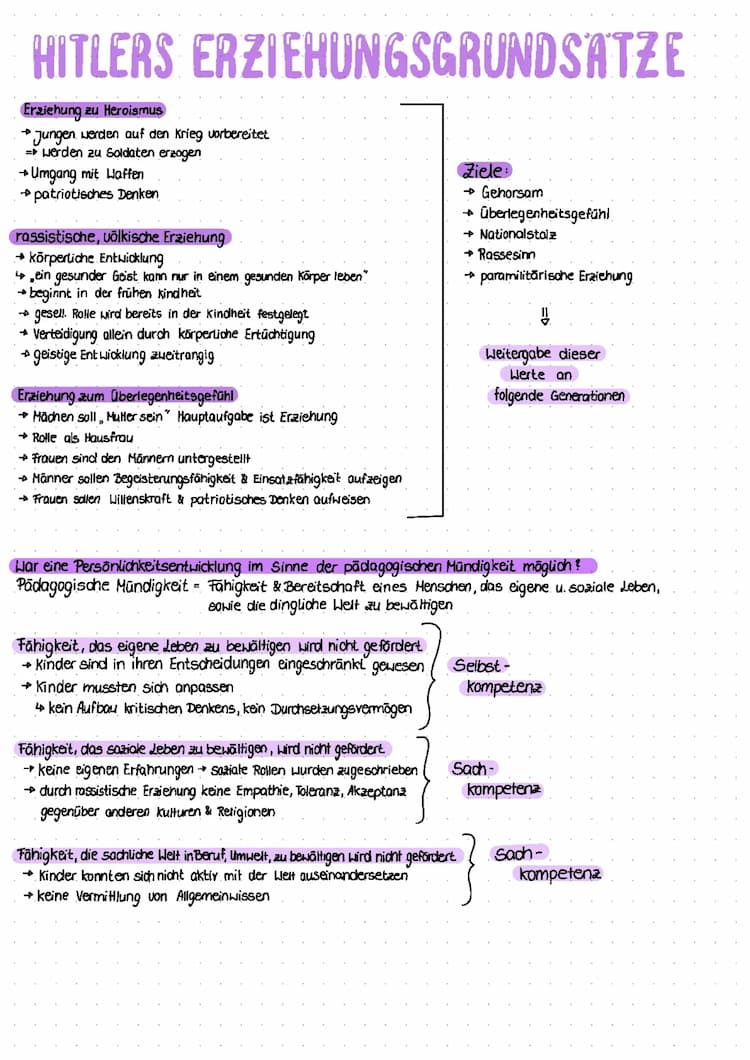 HITLERS ERZIEHUNGSGRUNDSÄTZE
Erziehung zu Heroismus
→ Jungen werden auf den Krieg vorbereitet
⇒ werden zu Soldaten erzogen
→ Umgang mit Waffen
→ patriotisches Denken
rassistische, völkische Erziehung
→ körperliche Entwicklung
↳ „ein gesunder Geist kann nur in einem gesunden Körper leben"
→ beginnt in der frühen Kindheit
→ gesell. Rolle wird bereits in der Kindheit festgelegt
→ Verteidigung allein durch körperliche Ertüchtigung
→ geistige Entwicklung zweitrangig
Erziehung zum Überlegenheitsgefühl
→ Mächen soll „Mutter sein" Hauptaufgabe ist Erziehung
→ Rolle als Hausfrau
→ Frauen sind den Männern untergestellt
→ Männer sollen Begeisterungsfähigkeit & Einsatzfähigkeit aufzeigen
→ Frauen sollen Willenskraft & patriotisches Denken aufweisen
Ziele:
→ Gehorsam
→ Überlegenheitsgefühl
→ Nationalstolz
→ Rassesinn
→ paramilitärische Erziehung
⇓
Weitergabe dieser
Werte an
folgende Generationen
War eine Persönlichkeitsentwicklung im Sinne der pädagogischen Mündigkeit möglich?
Pädagogische Mündigkeit = Fähigkeit & Bereitschaft eines Menschen, das eigene u. soziale Leben,
sowie die dingliche Welt zu bewältigen
Fähigkeit, das eigene Leben zu bewältigen wird nicht gefördert
→ Kinder sind in ihren Entscheidungen eingeschränkt gewesen
→ Kinder mussten sich anpassen
↳ kein Aufbau kritischen Denkens, kein Durchsetzungsvermögen
Selbst-
kompetenz
Fähigkeit, das soziale Leben zu bewältigen, wird nicht gefördert
→ keine eigenen Erfahrungen → soziale Rollen wurden zugeschrieben
→ durch rassistische Erziehung keine Empathie, Toleranz, Akzeptanz
gegenüber anderen Kulturen & Religionen
Sach-
kompetenz
Fähigkeit, die sachliche Welt in Beruf, Umwelt, zu bewältigen wird nicht gefördert
→ Kinder konnten sich nicht aktiv mit der Welt auseinandersetzen
→ keine Vermittlung von Allgemeinwissen
Sach-
kompetenz